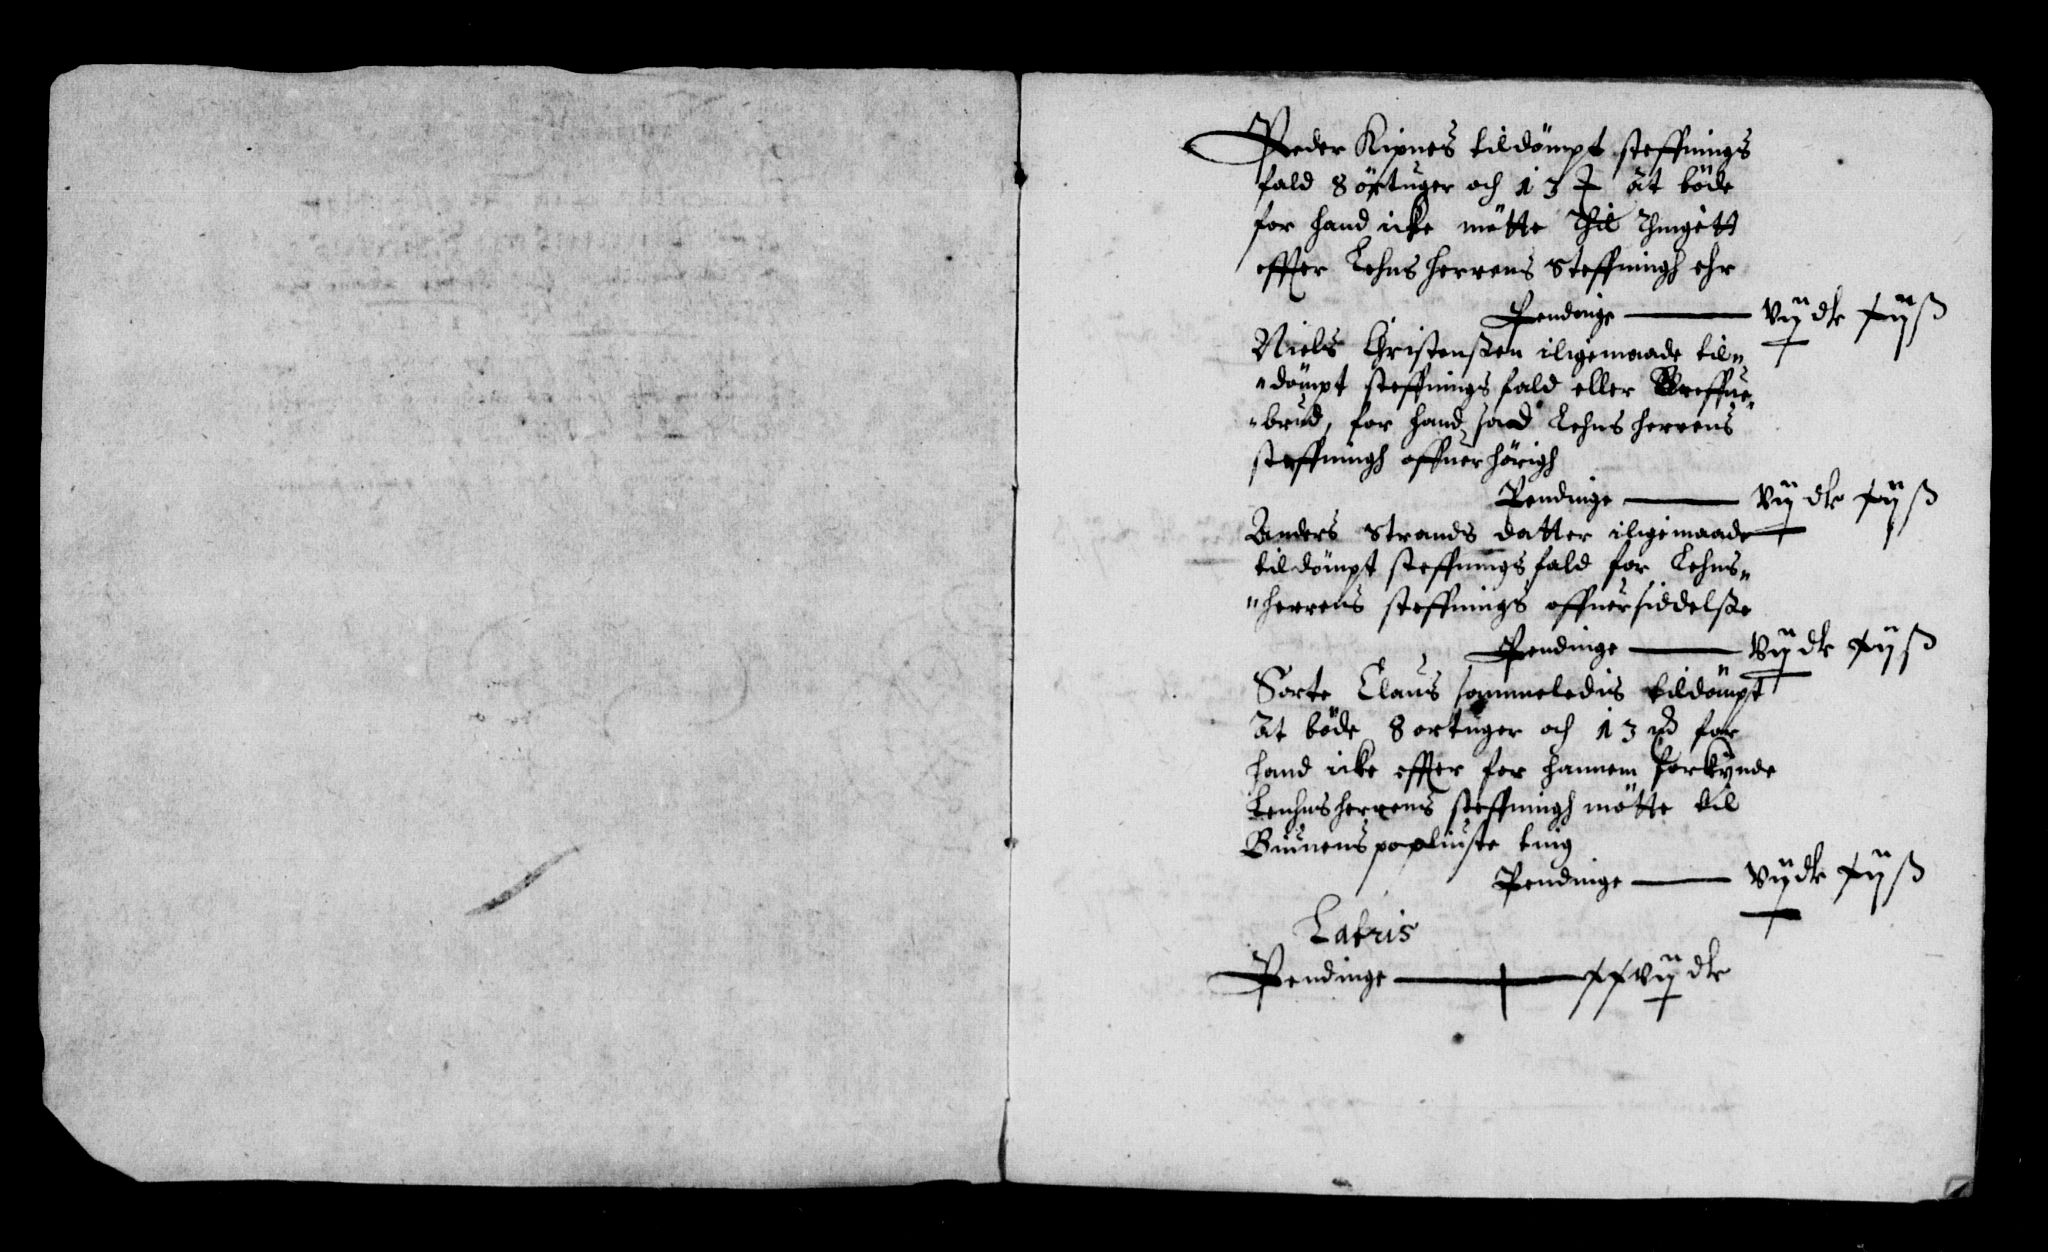 Peder Kipnes tildömpt steffnings
fald 8 örtuger och 13 ₰ at böde
for hand icke mötte Thil Thingett
effter Lehns herrens Steffningh ehr
Pendinge — vij dlr xij ß
Niels Christenßen iligemaade til„
„dömpt steffnings fald eller Breffue„
„brud, for hand sad Lehns herrens
steffningh offuerhörigh
Pendinge — vij dlr xij ß
Anders Strands datter iligemaade
tildömpt steffnings fald for Lehns„
„herrens steffnings offuersiddelße
Pendinge — vij dlr xij ß
Sorte Claus sammeledis tildömpt
at böde 8 ortuger och 13 ₰ for
hand icke effter for hannem forkynde
Lenhsherrens steffningh mötte til
ting
Pendinge — vij dlr xij ß
Latris
Pendinge — xxvij dlr